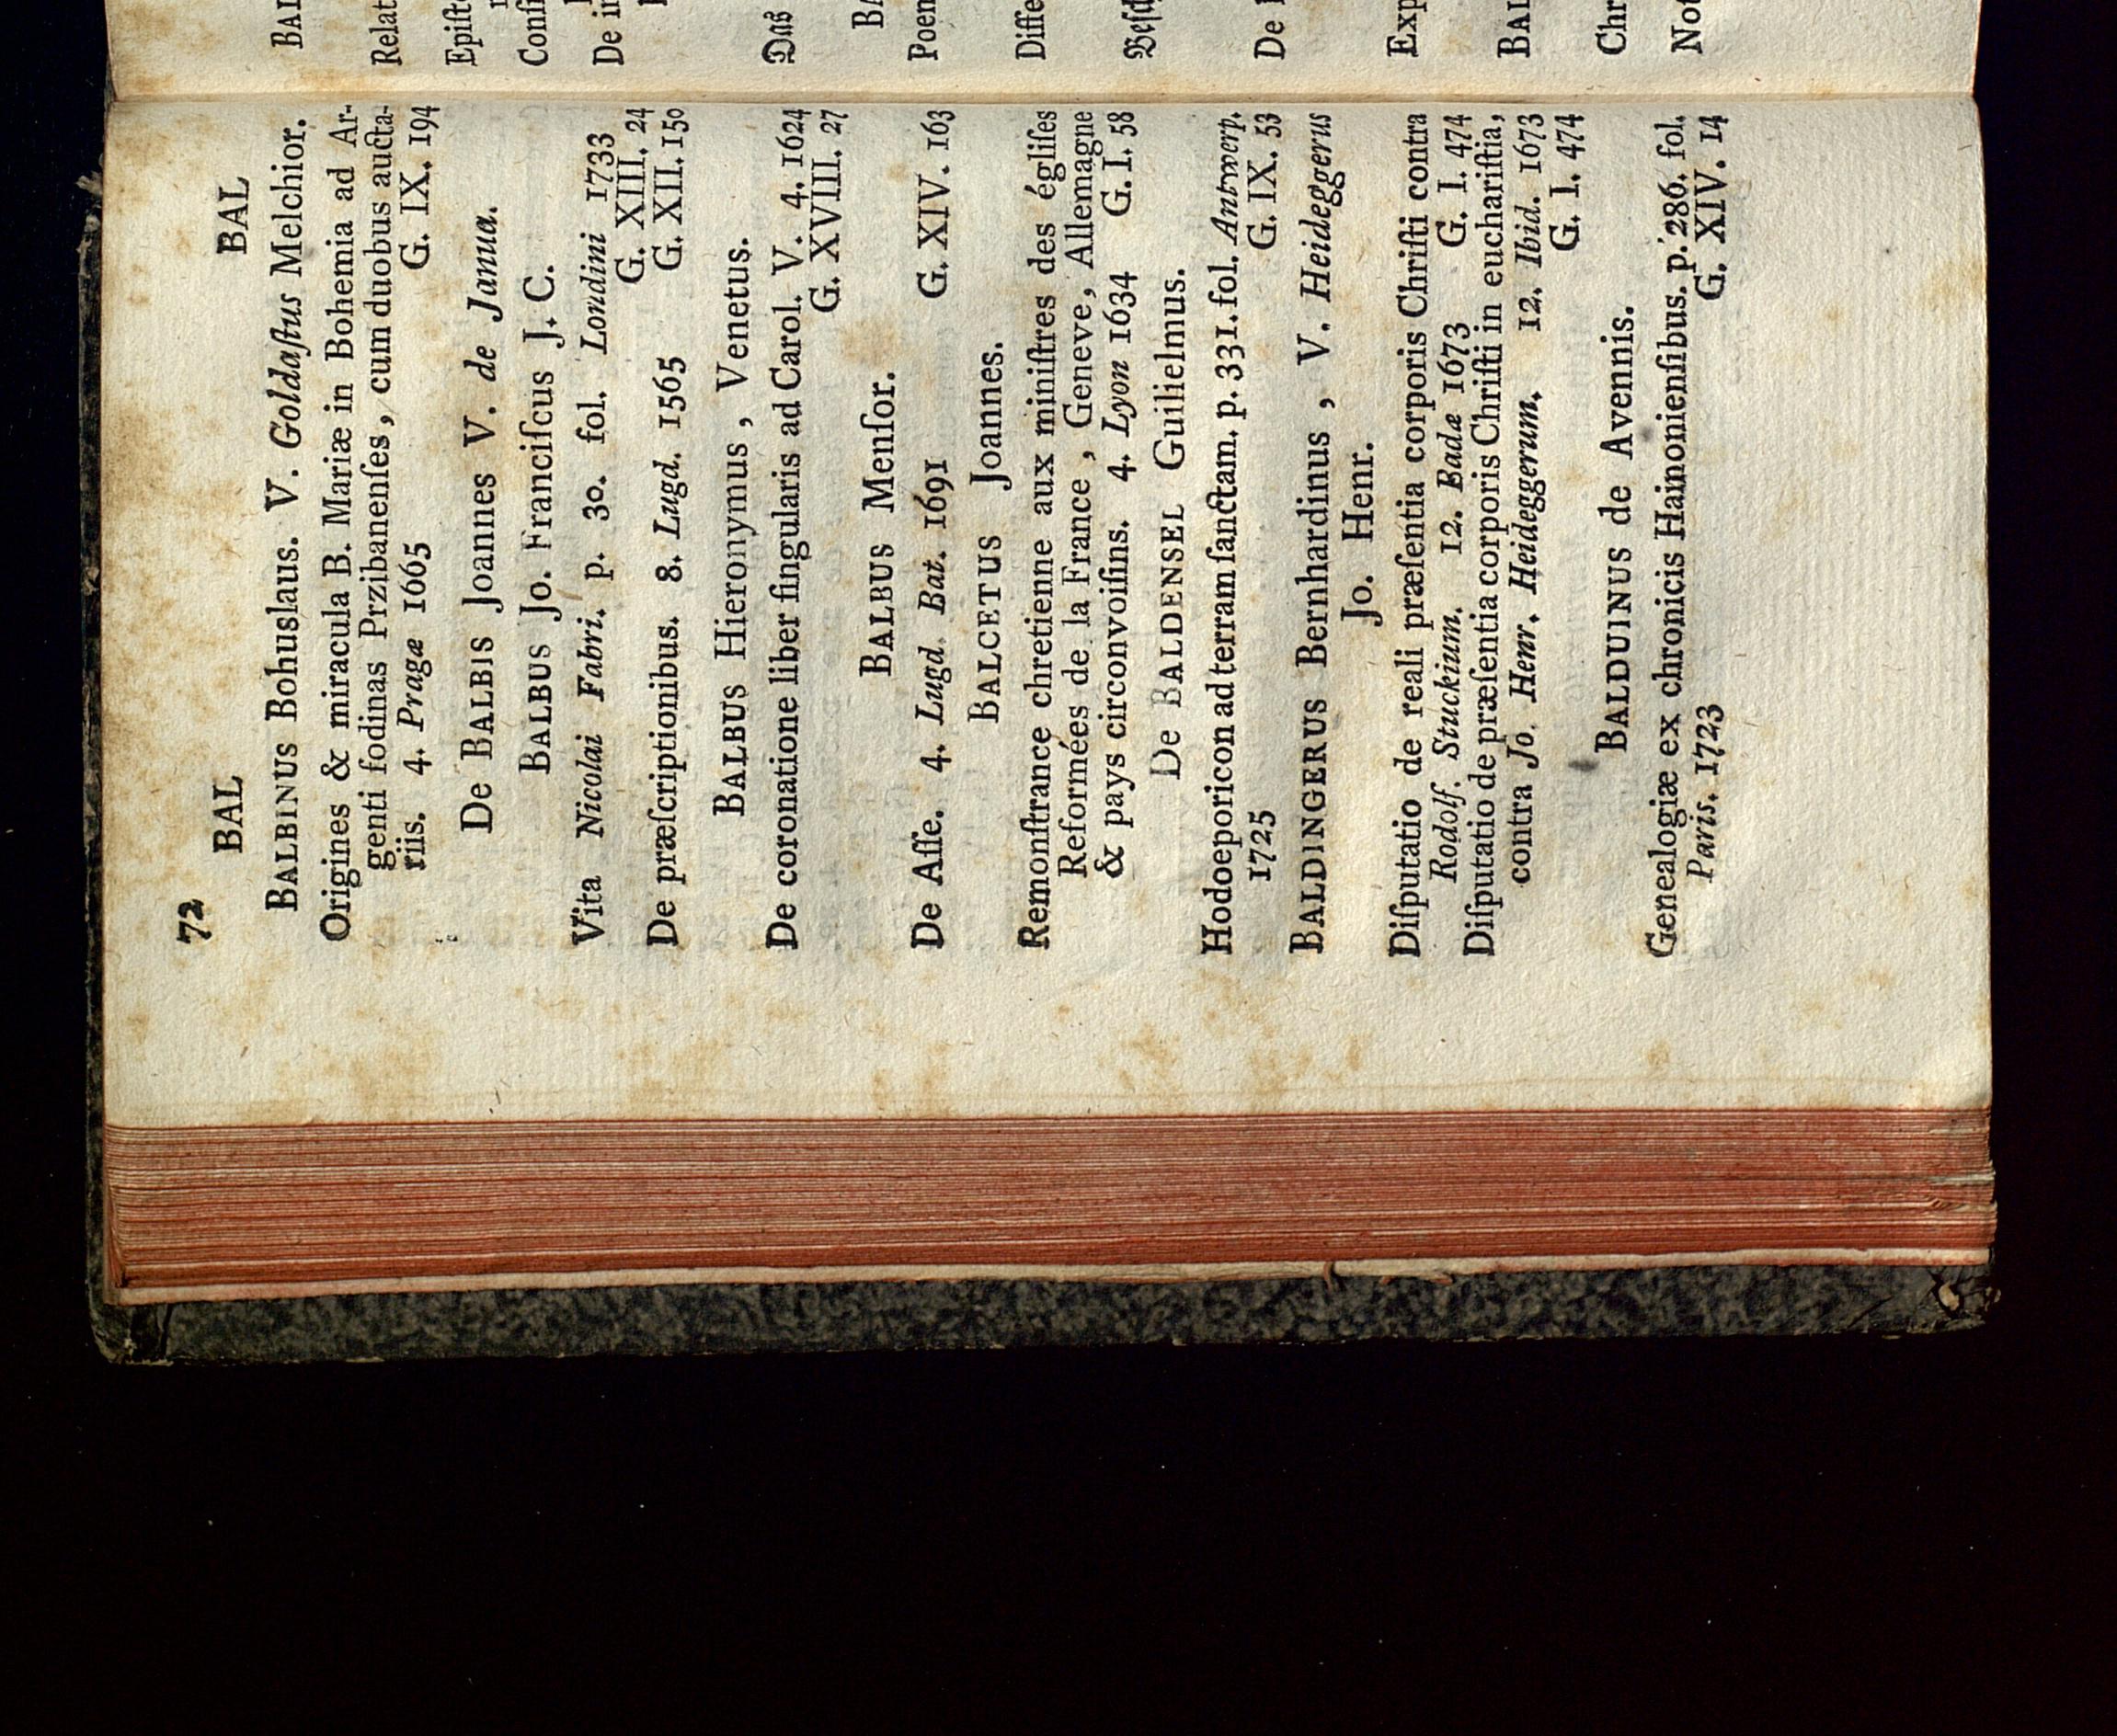 72
BAL BAL
BALBINUS Bohuslaus. V. Goldaſtus Melchior.
Origines & miracula B. Mariæ in Bohemia ad Ar-
genti fodinas Przibanenſes, cum duobus aucta-
riis. 4. Pragæ 1665 G. IX. 194
De BALBIS Joannes V. de Janua.
BALBUS Jo. Franciſcus J. C.
Vita Nicolai Fabri. p. 30. fol. Londini 1733
G. XIII. 24
De præſcriptionibus. 8. Lugd. 1565 G. XII. 150
BALBUS Hieronymus, Venetus.
De coronatione liber ſingularis ad Carol. V. 4. 1624
G. XVIII. 27
BALBUS Menſor.
De Aſſe. 4. Lugd. Bat. 1691 G. XIV. 163
BALCETUS Joannes.
Remonſtrance chretienne aux miniſtres des égliſes
Reformées de la France, Geneve, Allemagne
& pays circonvoiſins. 4. Lyon 1634 G. I. 58
De BALDENSEL Guilielmus.
Hodoeporicon ad terram ſanctam. p. 331. fol. Antwerp.
1725 G. IX. 53
BALDINGERUS Bernhardinus, V. Heideggerus
Jo. Henr.
Diſputatio de reali præſentia corporis Chriſti contra
Rodolf. Stuckium. 12. Badæ 1673 G. I. 474
Diſputatio de præſentia corporis Chriſti in euchariſtia,
contra Jo. Henr. Heideggerum. 12. Ibid. 1673
G. I. 474
BALDUINUS de Avennis.
Genealogiæ ex chronicis Hainonienſibus. p. 286. fol.
Paris. 1723 G. XIV. 14
BAL
Relat
Epiſt
Conſi
De i
Das
BA
Poen
Diffe
Beſch
De
Exp
BAL
Chr
Not